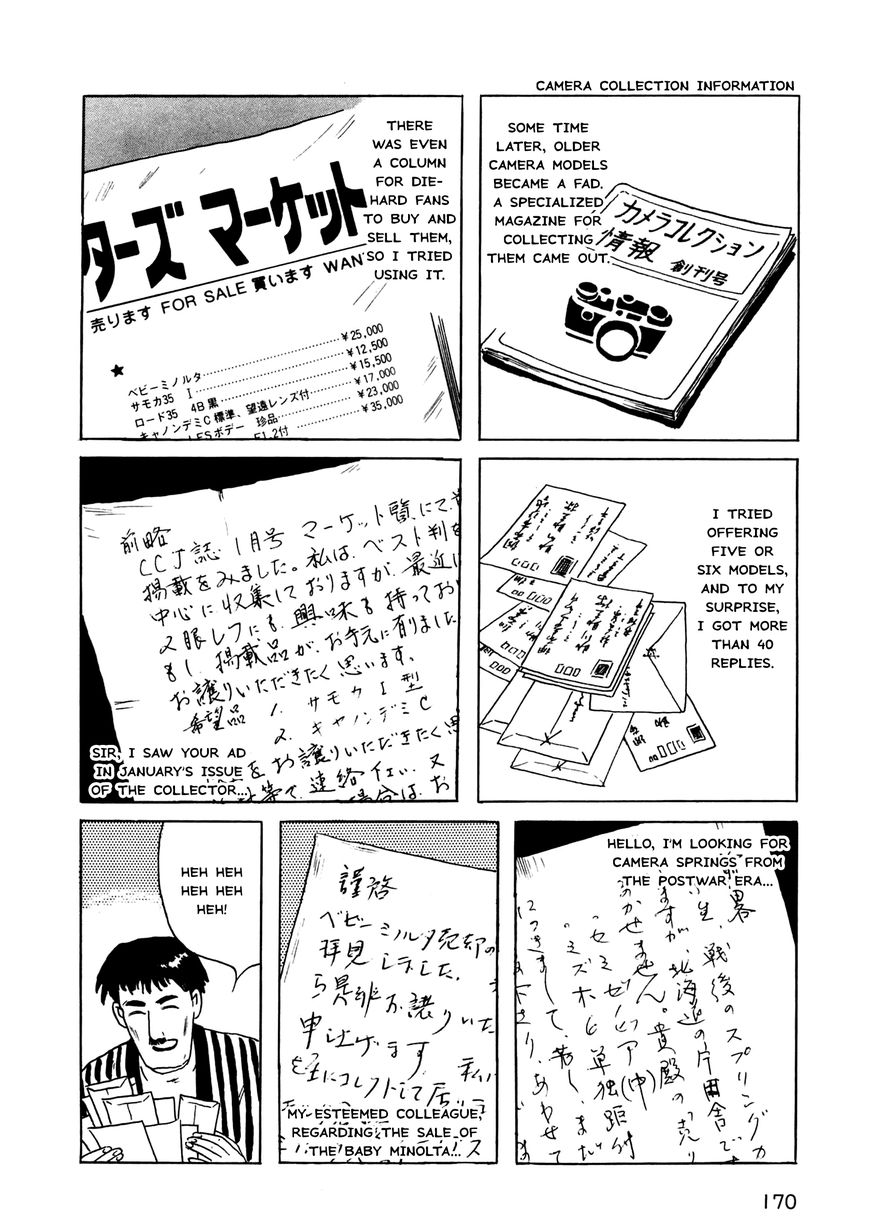 CAMERA COLLECTION INFORMATION
SOME TIME
LATER, OLDER
CAMERA MODELS
BECAME A FAD.
A SPECIALIZED
MAGAZINE FOR
COLLECTING
THEM CAME OUT.
カメラコレクション
情報
創刊号
THERE
WAS EVEN
A COLUMN
FOR DIE-
HARD FANS
TO BUY AND
SELL THEM,
SO I TRIED
USING IT.
ターズ マーケット
売ります FOR SALE 買います WAN
★
ベビーミノルタ ¥25,000
サモカ35 I ¥12,500
ロード35 4B黒 ¥15,500
キャノンデミC標準、望遠レンズ付 ¥17,000
ボデー 珍品 ¥23,000
F1.2付 ¥35,000
I TRIED
OFFERING
FIVE OR
SIX MODELS,
AND TO MY
SURPRISE,
I GOT MORE
THAN 40
REPLIES.
前略
CCJ誌 1月号 マーケット覧にて
掲載をみました。私は、ベスト判を
中心に収集しておりますが、最近は
2眼レフにも、興味も持ってお
もし、掲載品が、お手元に有りました
お譲りいただきたく思います、
希望品 1. サモカI型
2. キャノンデミC
をお譲りいただきたく思
等で、連絡 又
場合は、お
SIR, I SAW YOUR AD
IN JANUARY'S ISSUE
OF THE COLLECTOR...
HELLO, I'M LOOKING FOR
CAMERA SPRINGS FROM
THE POSTWAR ERA...
畧
戦後のスプリングカ
生、北海道の片田舎で
ますが、
のかせません。貴殿の「売り
"セミゼノビア(中)
"ミズホ 単独距付
につきまして、若し、まだ
あわせて
謹啓
ベビーミノルタ売却の
拝見しました、
是非お譲りいた
申上げます
私
MY ESTEEMED COLLEAGUE,
REGARDING THE SALE OF
THE BABY MINOLTA!..
HEH HEH
HEH HEH
HEH!
170